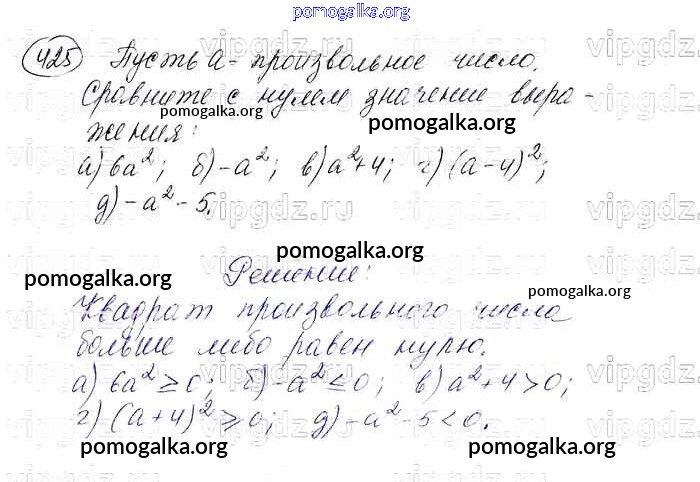 pomogalka.org
425 Пусть а - произвольное число.
Сравните с нулем значение выра-
pomogalka.org pomogalka.org
жения:
а) 6a²; б) -a²; в) a²+4; г) (a-4)²;
д) -a²-5.
pomogalka.org
Решение:
pomogalka.org pomogalka.org
Квадрат произвольного числа
больше либо равен нулю.
а) 6a² ≥ 0; б) -a² ≤ 0; в) a²+4 > 0;
г) (a+4)² ≥ 0; д) -a²-5 < 0.
pomogalka.org pomogalka.org